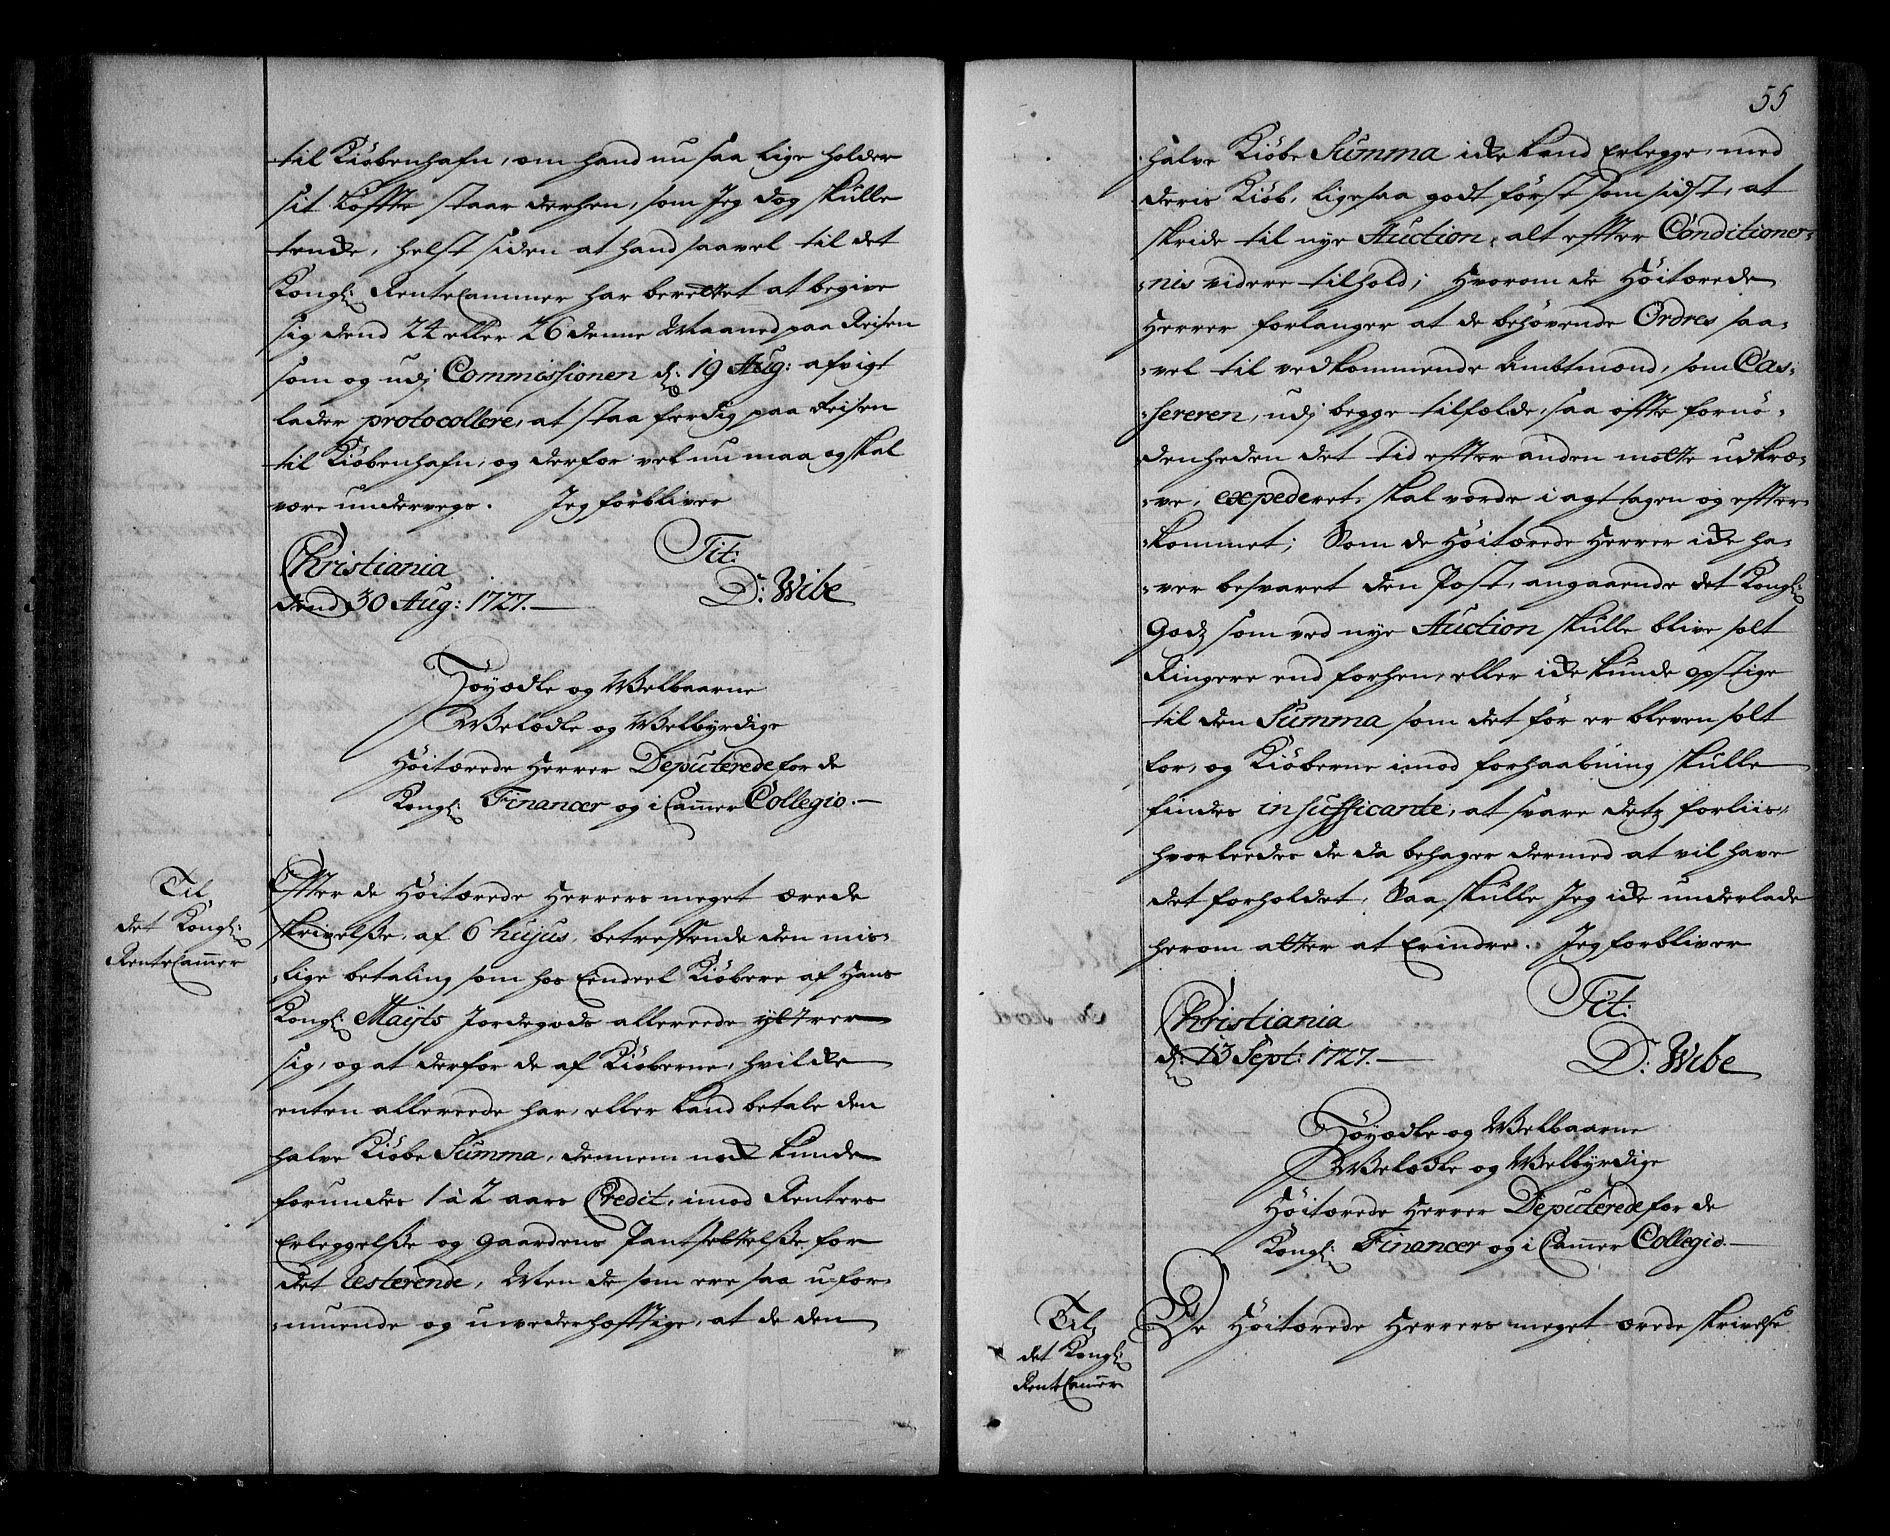 til Kiøbenhafn, om hand nu saa lige holder
sit Løffte staar derhen, som Jeg dog skulle
tencke, helst siden at hand saavel til det
Kongl: RenteCammer har berettet at begive
sig dend 24 eller 26 denne Maaned paa Reisen
som og udj Commissionen d: 19 Aug: afvigt
lader protocollere, at staa ferdig paa Reisen
til Kiøbenhafn, og derfor vel nu maa og skal
være undervegs. Jeg forbliver
Christiania
dend 30 Aug: 1727.
Tit:
D: Wibe
Høyædle og Welbaarne
Welædle og Welbyrdige
Høitærede Herrer Deputerede for de
Kongl: Financer og i Cammer Collegio.
Til
det Kongl:
RenteCammer
Effter de Høitærede Herrers meget ærede
skrivelße, af 6 hujus, betreffende den mis-
lige betaling som hos Eendeel Kiøbere af Hans
Kongl: Maÿts Jordegods allereede yttrer
sig, og at derfor de af Kiøberne, hvilcke
enten allereede har, eller kand betale den
halve Kiøbe Summa, dennem nock kunde
forundes 1 à 2 aars Credit, imod Renters
Erleggelße og Gaardens Pantsettelße for
det resterende, Men de som ere saa ufor-
muende og uvederhefftige, at de den
55
halve Kiøbe Summa icke kand Erlegge, med
deris Kiøb, ligesaa godt først som sidst, at
skride til nye Auction, alt effter Conditioner-
nis videre tilhold; Hvorom de Høitærede
Herrer forlanger at de behøvende Ordres saa-
vel til vedkommende Ambtmænd, som Cas-
sereren, udj begge tilfælde, saa offte fornø-
denheden det tid effter anden motte udkræ-
ve, expederet, skal vorde i agt tagen og effter-
kommet; Som de Høitærede Herrer icke ha-
ver besvaret den Post, angaaende det Kongl:
Godz som ved nye Auction skulle blive solt
Ringere end forhen, eller icke kunde opstige
til den Summa som det før er bleven solt
for, og Kiøberne imod forhaabning skulle
findes insufficante, at svare detz forliis,
hvorleedes de da behager dermed at vil have
det forholdet, Saa skulle Jeg icke underlade
herom atter at Erindre. Jeg forbliver
Christiania
d: 13 Sept: 1727.
Tit:
D: Wibe
Høyædle og Welbaarne
Welædle og Welbyrdige
Høitærede Herrer Deputerede for de
Kongl: Financer og i Cammer Collegio.
Til
det Kongl:
RenteCammer
De Høitærede Herrers meget ærede skrivelße